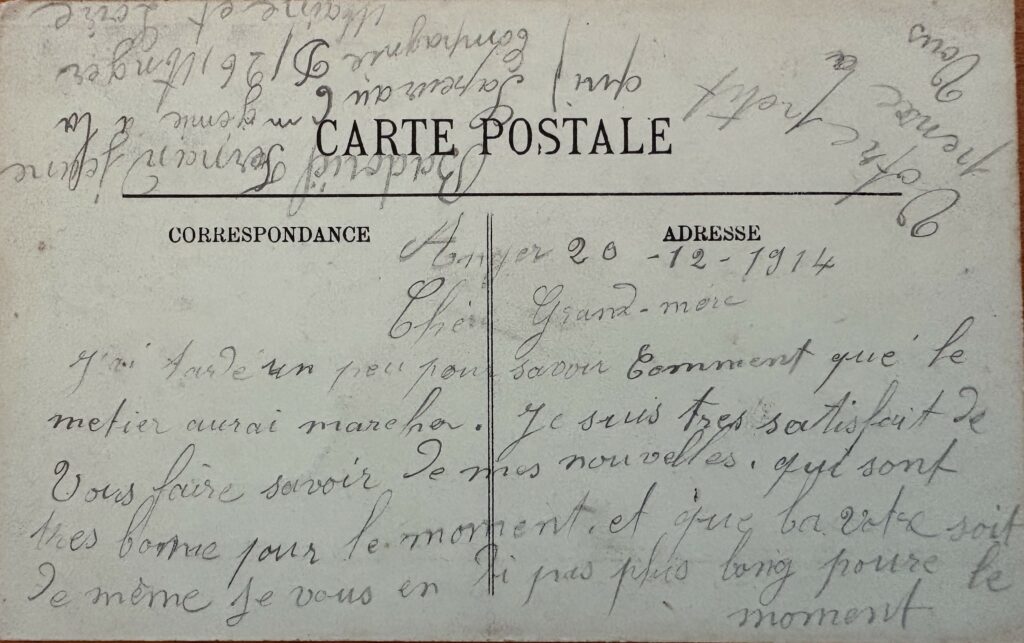 CARTE POSTALE
CORRESPONDANCE
ADRESSE
Anger 20 - 12 - 1914
Chère Grand-mère
J'ai tardé un peu pour savoir Comment que le
metier aurai marcher. Je suis tres satisfait de
Vous faire savoir de mes nouvelles. qui sont
tres bonne pour le moment. et que la votre soit
de même Je vous en di pas plus long poure le
moment
Votre petit
qui pense a
Vous
Fernain
génie à la
Compagnie D/26, Anger
Maine et Loire